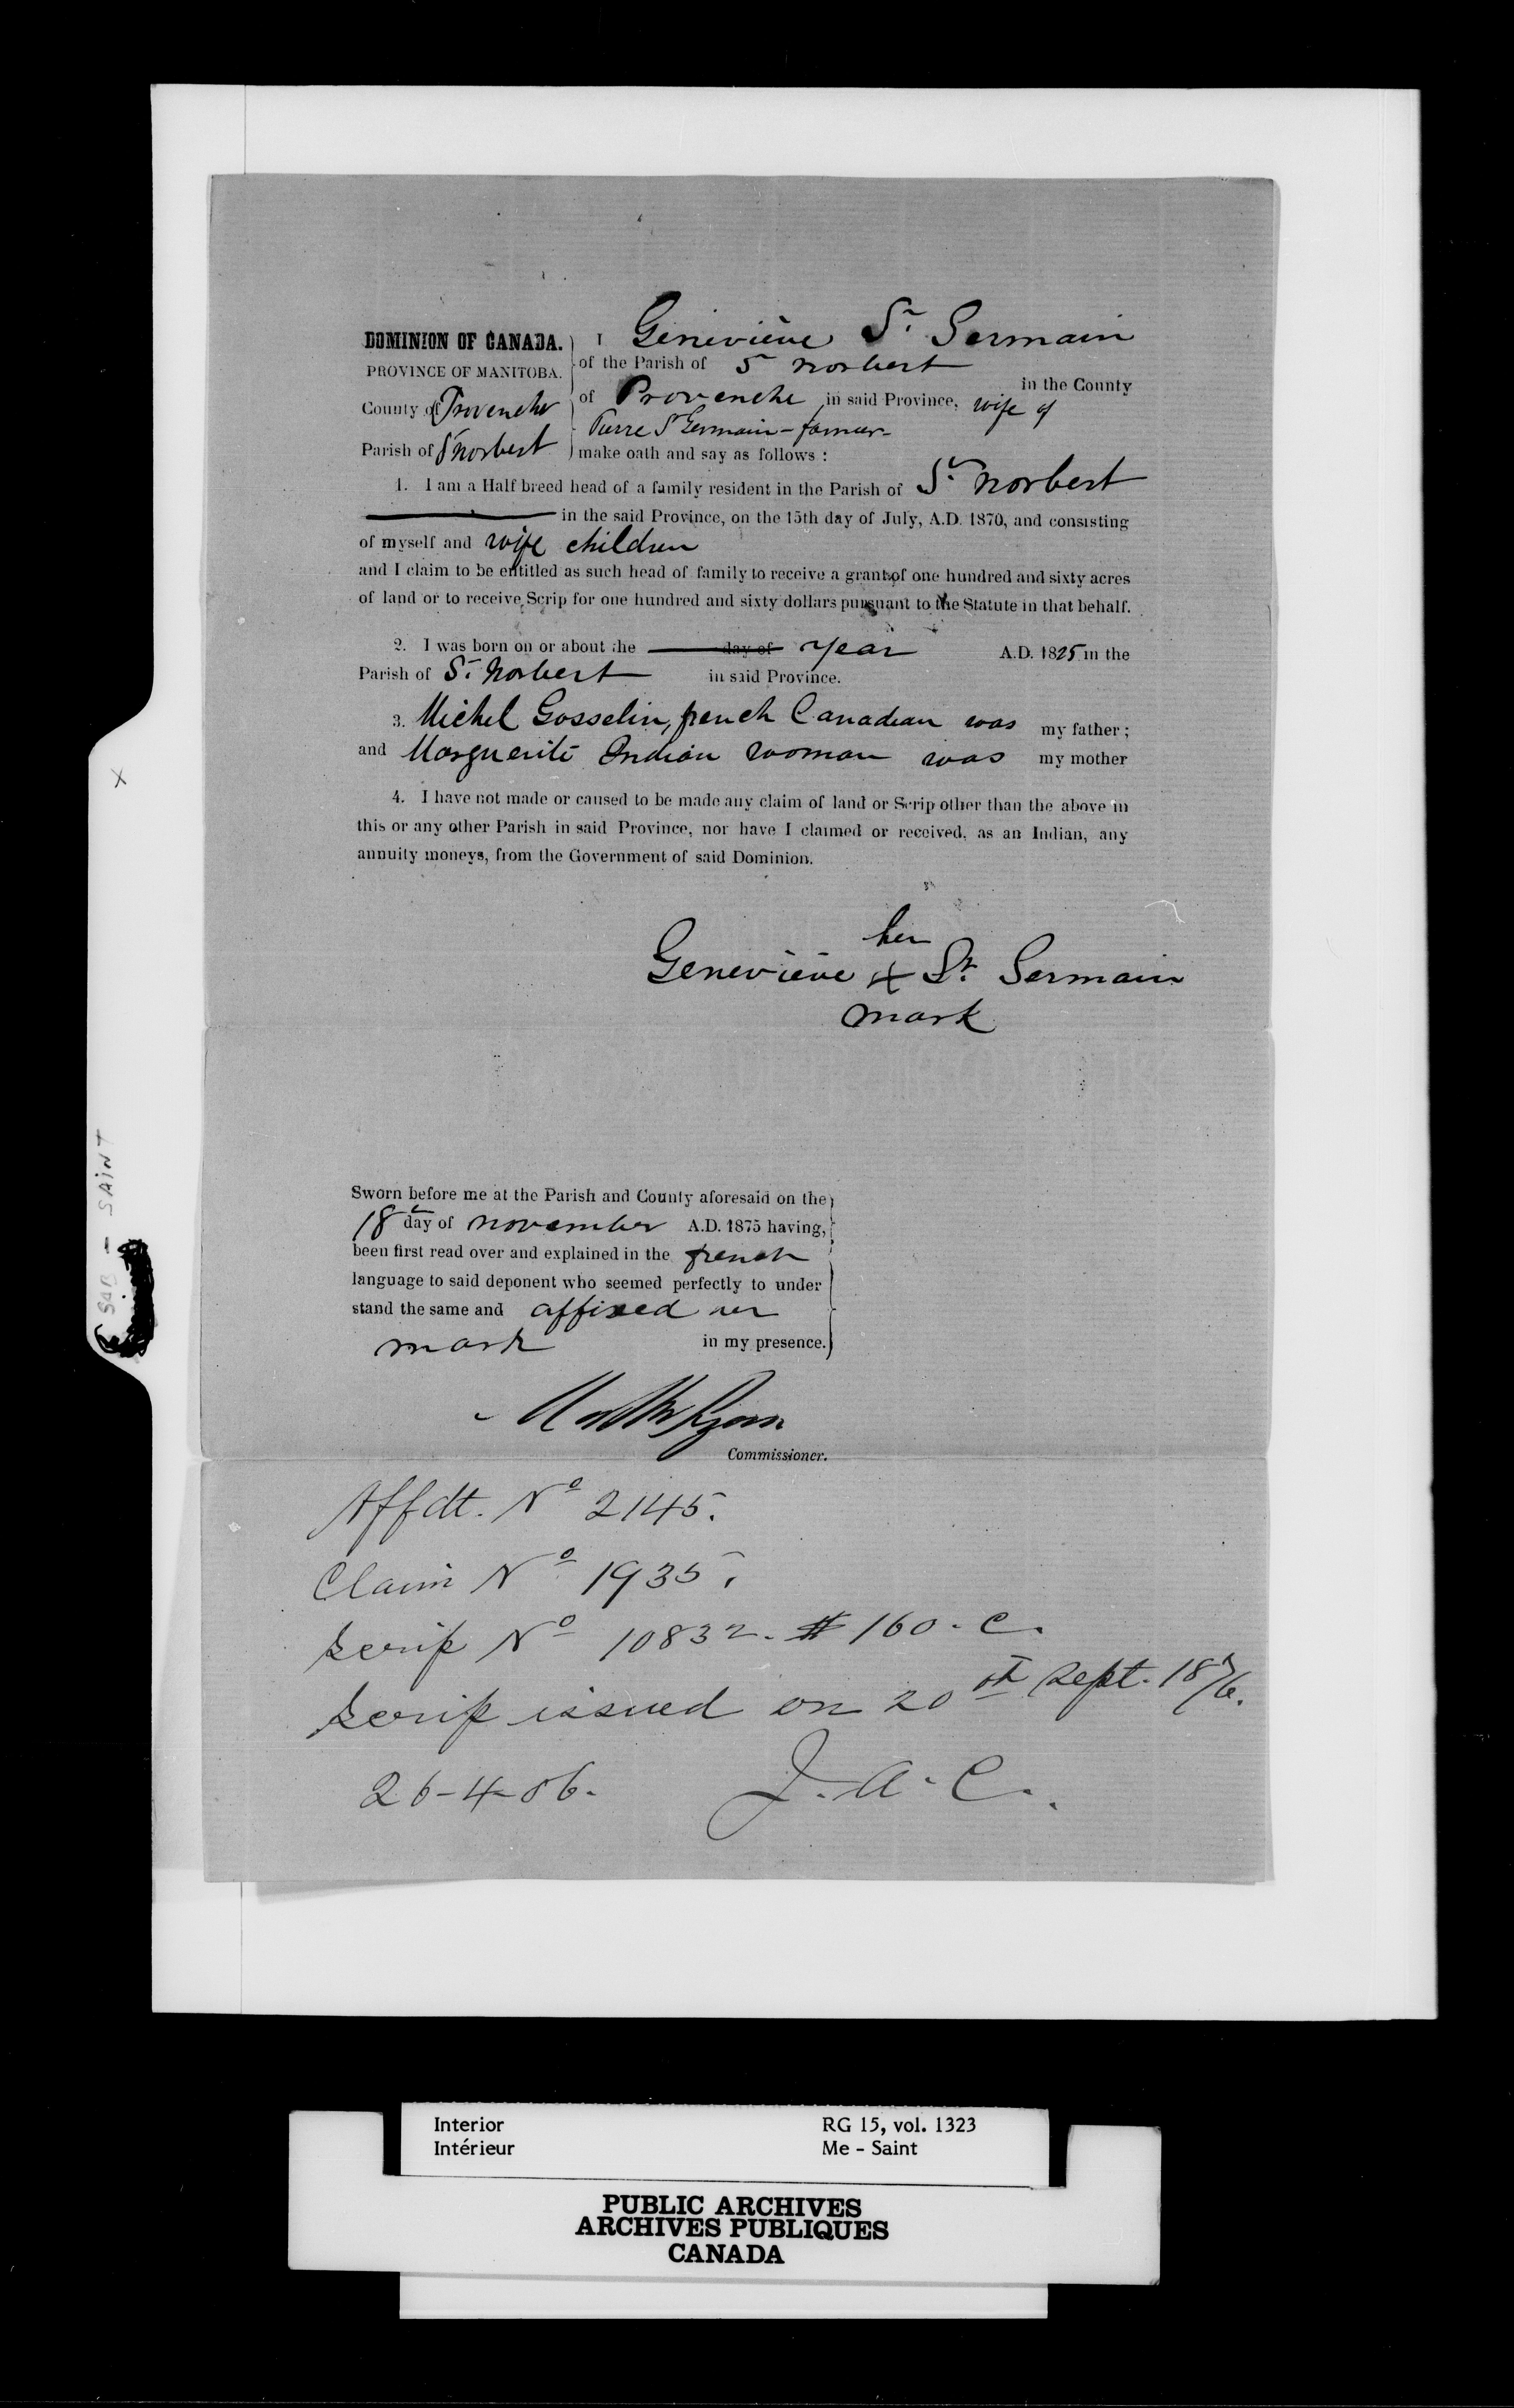 DOMINION OF CANADA.
PROVINCE OF MANITOBA.
County of Provencher
Parish of St Norbert
I Geneviève St. Germain
of the Parish of St Norbert
in the County
of Provencher in said Province, wife of
Pierre St Germain - farmer -
make oath and say as follows :
1. I am a Half breed head of a family resident in the Parish of St. Norbert
in the said Province, on the 15th day of July, A.D. 1870, and consisting
of myself and wife children
and I claim to be entitled as such head of family to receive a grant of one hundred and sixty acres
of land or to receive Scrip for one hundred and sixty dollars pursuant to the Statute in that behalf.
2. I was born on or about the day of year A.D. 1825 in the
Parish of St. Norbert in said Province.
3. Michel Gosselin, french Canadian was my father ;
and Marguerite Indian woman was my mother
4. I have not made or caused to be made any claim of land or Scrip other than the above in
this or any other Parish in said Province, nor have I claimed or received, as an Indian, any
annuity moneys, from the Government of said Dominion.
her
Geneviève X St. Germain
mark
Sworn before me at the Parish and County aforesaid on the
18th day of november A.D. 1875 having,
been first read over and explained in the french
language to said deponent who seemed perfectly to under
stand the same and affixed her
mark in my presence.
Matthew Ryan
Commissioner.
Affdt. No 2145.
Claim No 1935.
Scrip No 10832. $160. C.
Scrip issued on 20th Sept. 1876.
26-4-86. J. A. C.
X
SAB - SAINT
Interior RG 15, vol. 1323
Intérieur Me - Saint
PUBLIC ARCHIVES
ARCHIVES PUBLIQUES
CANADA